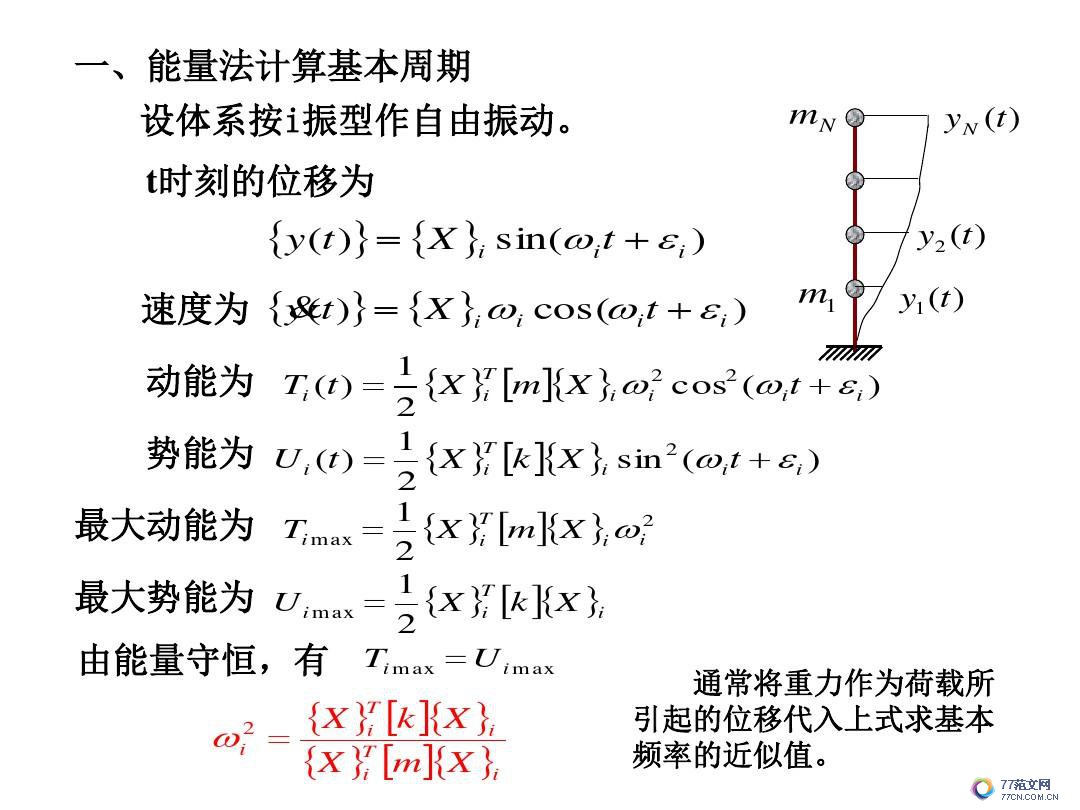 一、能量法计算基本周期
设体系按i振型作自由振动。
t时刻的位移为
{y(t)} = {X}_i sin(ω_i t + ε_i)
速度为 {y&(t)} = {X}_i ω_i cos(ω_i t + ε_i)
动能为 T_i(t) = 1/2 {X}_i^T [m]{X}_i ω_i^2 cos^2(ω_i t + ε_i)
势能为 U_i(t) = 1/2 {X}_i^T [k]{X}_i sin^2(ω_i t + ε_i)
最大动能为 T_imax = 1/2 {X}_i^T [m]{X}_i ω_i^2
最大势能为 U_imax = 1/2 {X}_i^T [k]{X}_i
由能量守恒，有 T_imax = U_imax
ω_i^2 = {X}_i^T [k]{X}_i / {X}_i^T [m]{X}_i
m_N y_N(t)
y_2(t)
m_1 y_1(t)
通常将重力作为荷载所
引起的位移代入上式求基本
频率的近似值。
77范文网
77CN.COM.CN